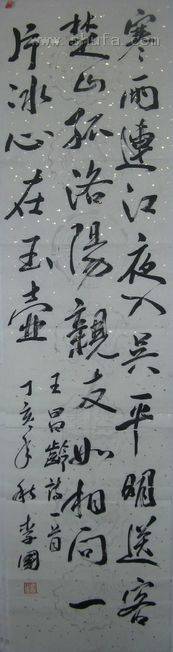 寒雨連江夜入吴平明送客
楚山孤洛陽親友如相問一
片冰心在玉壺
王昌齡詩一首
丁亥年秋李國